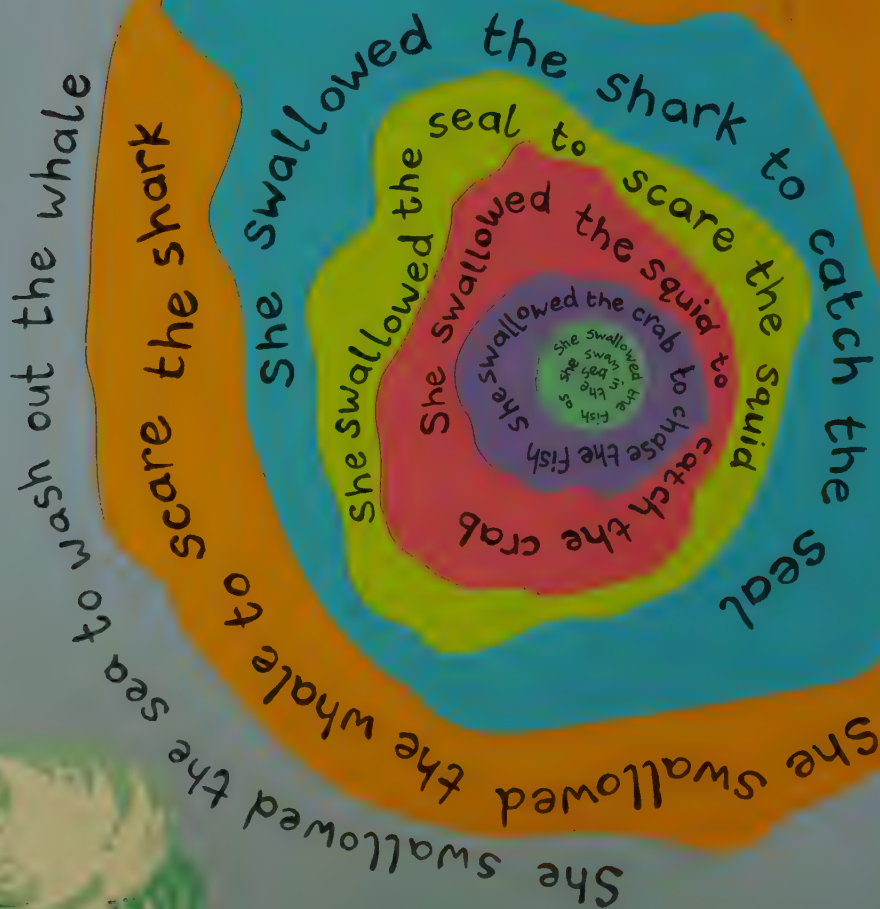 She swallowed the sea to wash out the whale
She swallowed the whale to scare the shark
She swallowed the shark to catch the seal
She swallowed the seal to scare the squid
She swallowed the squid to catch the crab
She swallowed the crab to chase the fish
She swallowed the fish as
she swam
in
the
sea